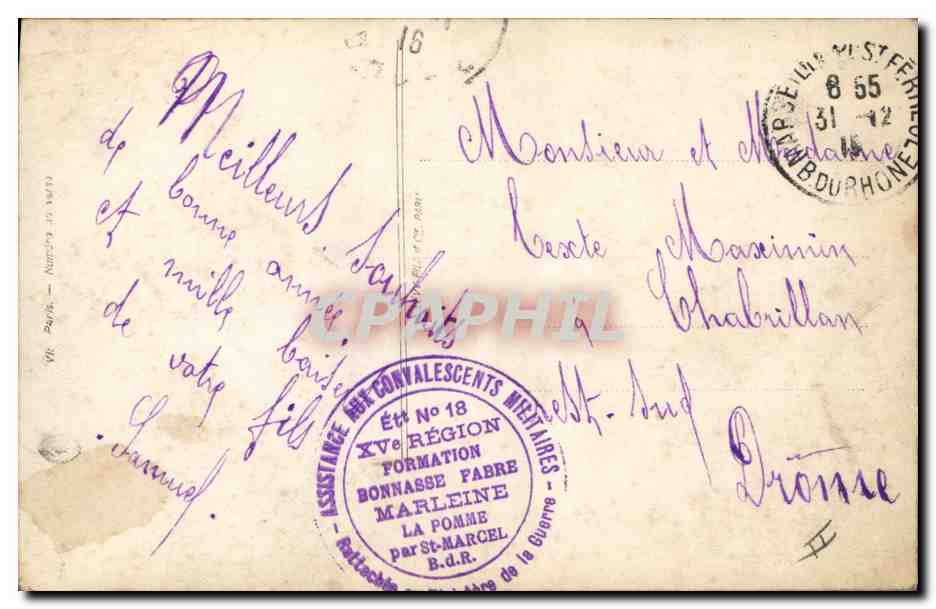 Meilleurs Souhaits
de bonne année
et mille baisers
de votre fils
Samuel.
Monsieur et Madame
Texte Maximin
à Chabrillan
Est-Sud
Drôme
16
ST FERREOL
8 55
31 -12
15
B. DU RHONE
ASSISTANCE AUX CONVALESCENTS MILITAIRES
Étt No 18
XVe RÉGION
FORMATION
BONNASSE FABRE
MARLEINE
LA POMME
par St-MARCEL
B.d.R.
Rattachée de la Guerre
Paris. — Numéro
CPAPHIL
II